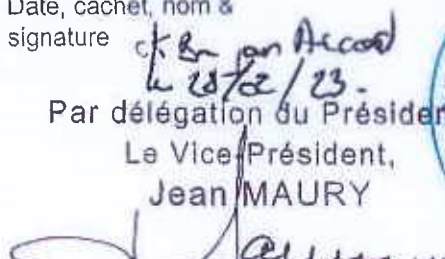 Date, cachet, nom &
signature
Bon pour Accord
le 28/02/23.
Par délégation du Présiden
Le Vice-Président,
Jean MAURY